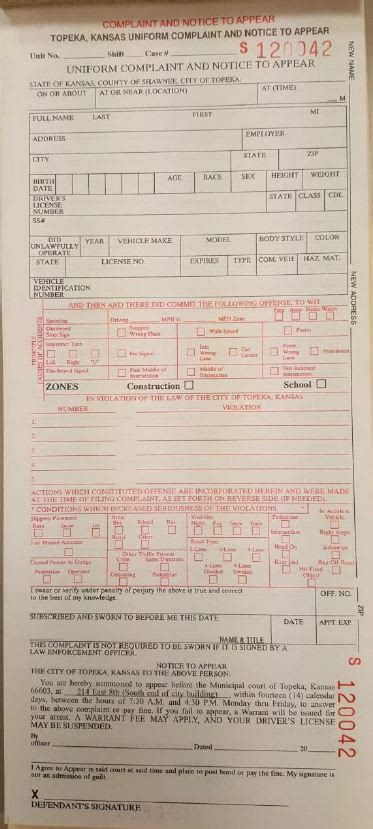 COMPLAINT AND NOTICE TO APPEAR
TOPEKA, KANSAS UNIFORM COMPLAINT AND NOTICE TO APPEAR
Unit No. Shift Case #
S 120042
UNIFORM COMPLAINT AND NOTICE TO APPEAR
STATE OF KANSAS, COUNTY OF SHAWNEE, CITY OF TOPEKA.
ON OR ABOUT AT OR NEAR (LOCATION) AT (TIME)
M
NEW NAME
FULL NAME LAST FIRST MI
ADDRESS EMPLOYER
CITY STATE ZIP
BIRTH DATE AGE RACE SEX HEIGHT WEIGHT
DRIVER'S LICENSE NUMBER STATE CLASS CDL
SS#
DID UNLAWFULLY OPERATE YEAR VEHICLE MAKE MODEL BODY STYLE COLOR
STATE LICENSE NO. EXPIRES TYPE COM. VEH. HAZ. MAT.
VEHICLE IDENTIFICATION NUMBER
NEW ADDRESS
AND THEN AND THERE DID COMMIT THE FOLLOWING OFFENSE, TO WIT:
Speeding Driving MPH in MPH Zone Radar
Disobeyed Stop Sign Stopped Wrong Place Walk Speed Faster
Improper Turn No Signal Into Wrong Lane Cut Corner From Wrong Lane Prohibited
Left Right "U"
Disobeyed Signal Past Middle of Intersection Middle of Intersection Not Reached Intersection
ZONES Construction School
IN VIOLATION OF THE LAW OF THE CITY OF TOPEKA, KANSAS
NUMBER VIOLATION
1.
2.
3.
4.
5.
ACTIONS WHICH CONSTITUTED OFFENSE ARE INCORPORATED HEREIN AND WERE MADE
AT THE TIME OF FILING COMPLAINT, AS SET FORTH ON REVERSE SIDE (IF NEEDED).
* CONDITIONS WHICH INCREASED SERIOUSNESS OF THE VIOLATIONS: *
Slippery Pavement Area: Visibility: Pedestrian In Accident Vehicle
Rain Snow Ice Bus. School Res. Night Fog Snow Rain
Rural Other Road Type: Intersection Right Angle
Just Missed Accident Other Traffic Present 2-Lane 3-Lane 4-Lane Head On Sideswipe
Caused Person to Dodge Cross Same Direction Rear End Ran Off Road
Pedestrian Operator Oncoming Pedestrian 4-Lane Divided 6-Lane Divided Hit Fixed Object
I swear or verify under penalty of perjury the above is true and correct
to the best of my knowledge. OFF. NO.
SUBSCRIBED AND SWORN TO BEFORE ME THIS DATE. DATE APPT. EXP.
ZIP
NAME & TITLE
THIS COMPLAINT IS NOT REQUIRED TO BE SWORN IF IT IS SIGNED BY A
LAW ENFORCEMENT OFFICER.
NOTICE TO APPEAR
THE CITY OF TOPEKA, KANSAS TO THE ABOVE PERSON:
You are hereby summoned to appear before the Municipal court of Topeka, Kansas
66603, at 214 East 8th (South end of city building) within fourteen (14) calendar
days, between the hours of 7:30 A.M. and 4:30 P.M. Monday thru Friday, to answer
to the above complaint or pay fine. If you fail to appear, a Warrant will be issued for
your arrest. A WARRANT FEE MAY APPLY, AND YOUR DRIVER'S LICENSE
MAY BE SUSPENDED.
S 120042
By
officer Dated 20
I Agree to Appear in said court at said time and place to post bond or pay the fine. My signature is
not an admission of guilt.
X
DEFENDANT'S SIGNATURE